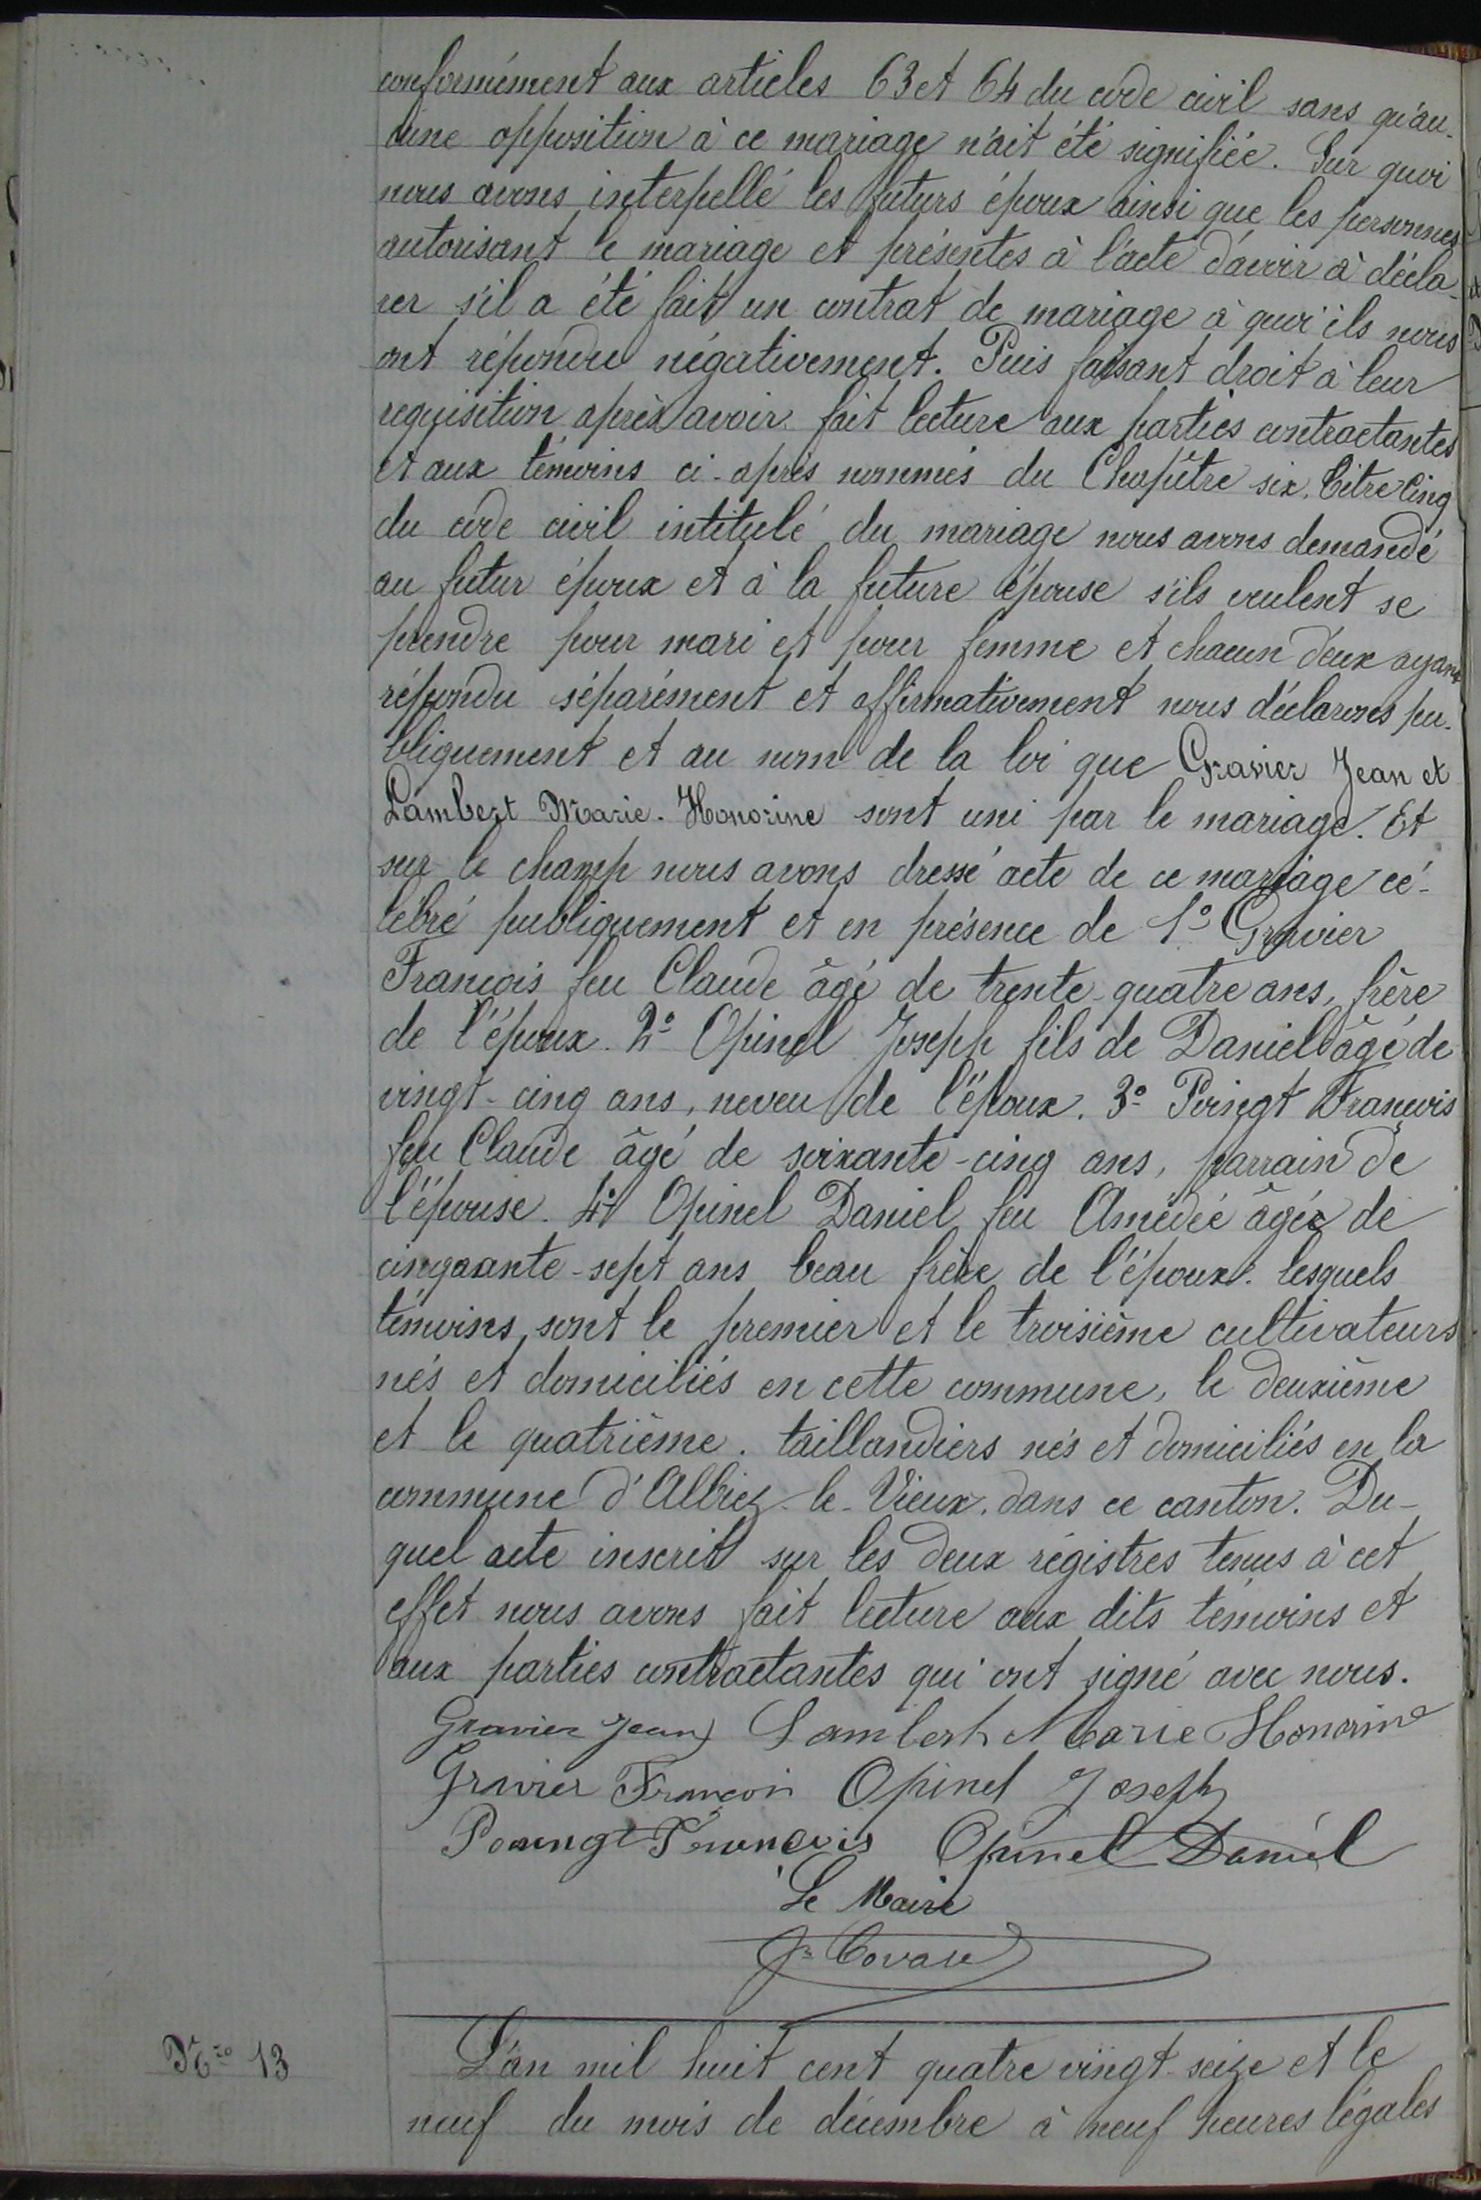 conformément aux articles 63 et 64 du code civil sans qu'au-
cune opposition à ce mariage n'ait été signifiée. Sur quoi
nous avons interpellé les futurs époux ainsi que les personnes
autorisant le mariage et présentes à l'acte d'avoir à décla-
rer s'il a été fait un contrat de mariage à quoi ils nous
ont répondu négativement. Puis faisant droit à leur
requisition après avoir fait lecture aux parties contractantes
et aux témoins ci-après nommés du Chapitre six, titre Cinq
du code civil intitulé du mariage nous avons demandé
au futur époux et à la future épouse s'ils veulent se
prendre pour mari et pour femme et chacun d'eux ayant
répondu séparément et affirmativement nous déclarons pu-
bliquement et au nom de la loi que Gravier Jean et
Lambert Marie-Honorine sont uni par le mariage. Et
sur le champ nous avons dressé acte de ce mariage cé-
lébré publiquement et en présence de 1º Gravier
François feu Claude âgé de trente-quatre ans, frère
de l'époux. 2º Opinel Joseph fils de Daniel âgé de
vingt-cinq ans, neveu de l'époux. 3º Poingt François
feu Claude âgé de soixante-cinq ans, parrain de
l'épouse. 4º Opinel Daniel feu Amédée âgée de
cinquante-sept ans beau frère de l'époux. lesquels
témoins sont le premier et le troisième cultivateurs
nés et domiciliés en cette commune, le deuxième
et le quatrième. taillandiers nés et domiciliés en la
commune d'Albiez-le-Vieux, dans ce canton. Du-
quel acte inscrit sur les deux régistres tenus à cet
effet nous avons fait lecture aux dits témoins et
aux parties contractantes qui ont signé avec nous.
Gravier Jean Lambert Marie Honorine
Gravier François Opinel Joseph
Poingt François Opinel Daniel
Le Maire
Nro 13
L'an mil huit cent quatre vingt-seize et le
neuf du mois de décembre à neuf heures légales